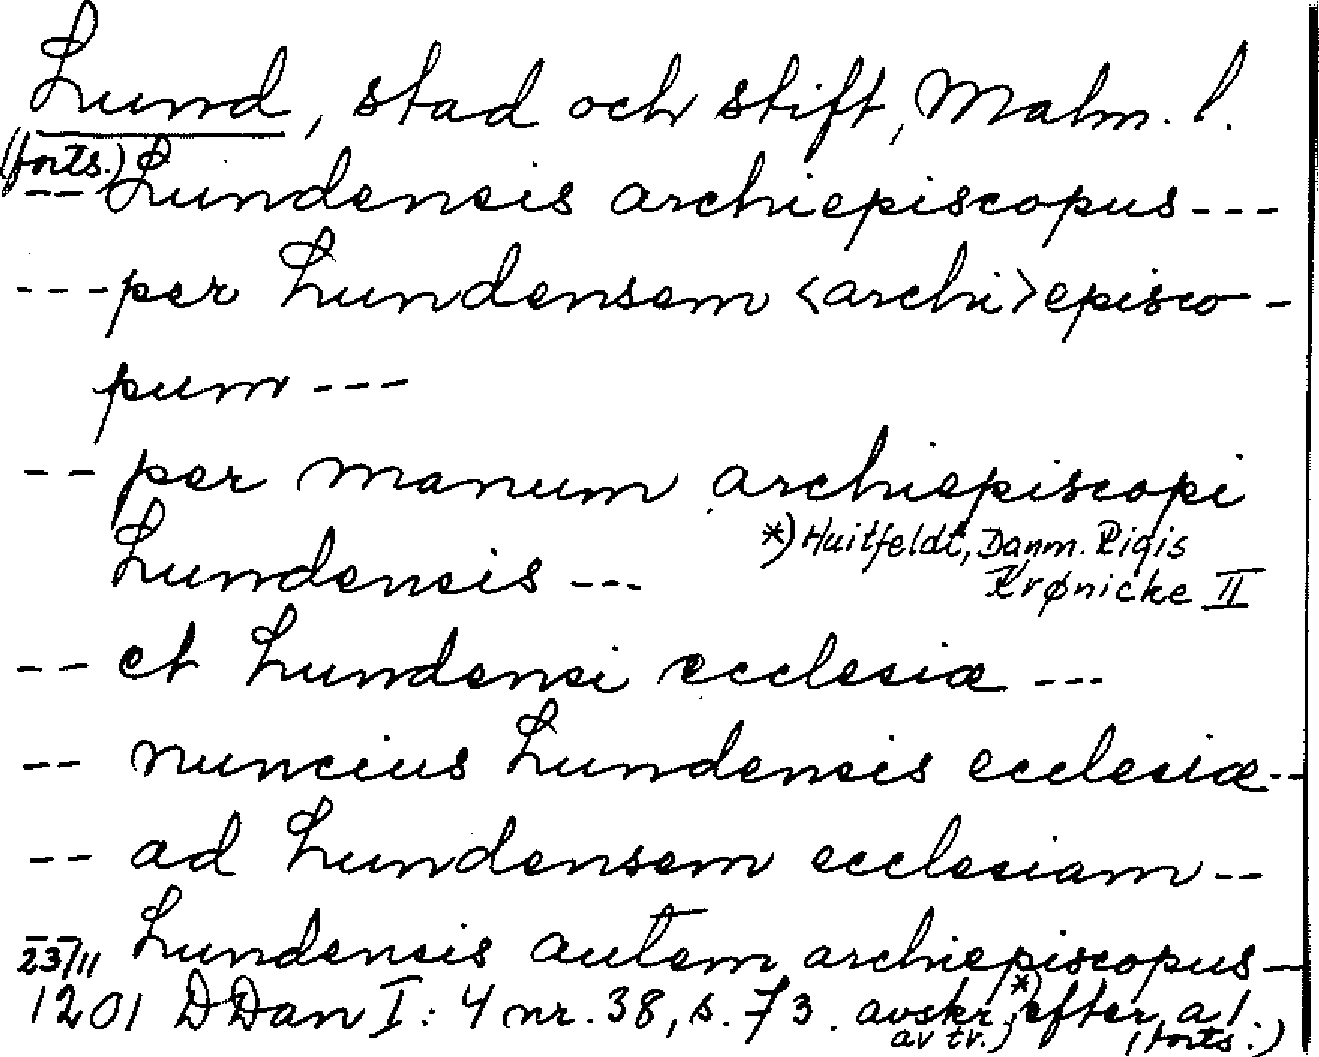 Lund, stad och stift, Malm. l.
(forts.)
-- Lundensis archiepiscopus ---
--- per Lundensem <archi>episco-
pum ---
-- per manum archiepiscopi
Lundensis ---
*) Huitfeldt, Danm. Rigis
Krønicke II
-- et Lundensi ecclesiæ ---
-- nuncius Lundensis ecclesiæ --
-- ad Lundensem ecclesiam --
-- Lundensis autem archiepiscopus --
23/11
1201 DDan I: 4 nr. 38, s. 73. avskr. *) efter a l.
av tr.) (forts.)